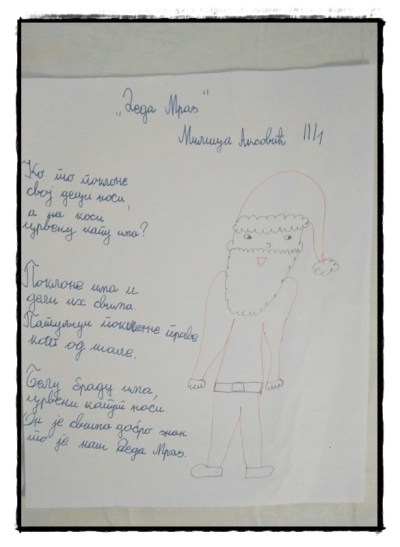 „Деда Мраз"
Милица III/1
Ко то поклоне
свој деци носи,
а на коси
црвену капу има?
Поклоне има и
дели их свима.
Патуљци поклоне праве
од шале.
Белу браду има,
црвени капут носи.
Он је свима добро знан
то је наш Деда Мраз.